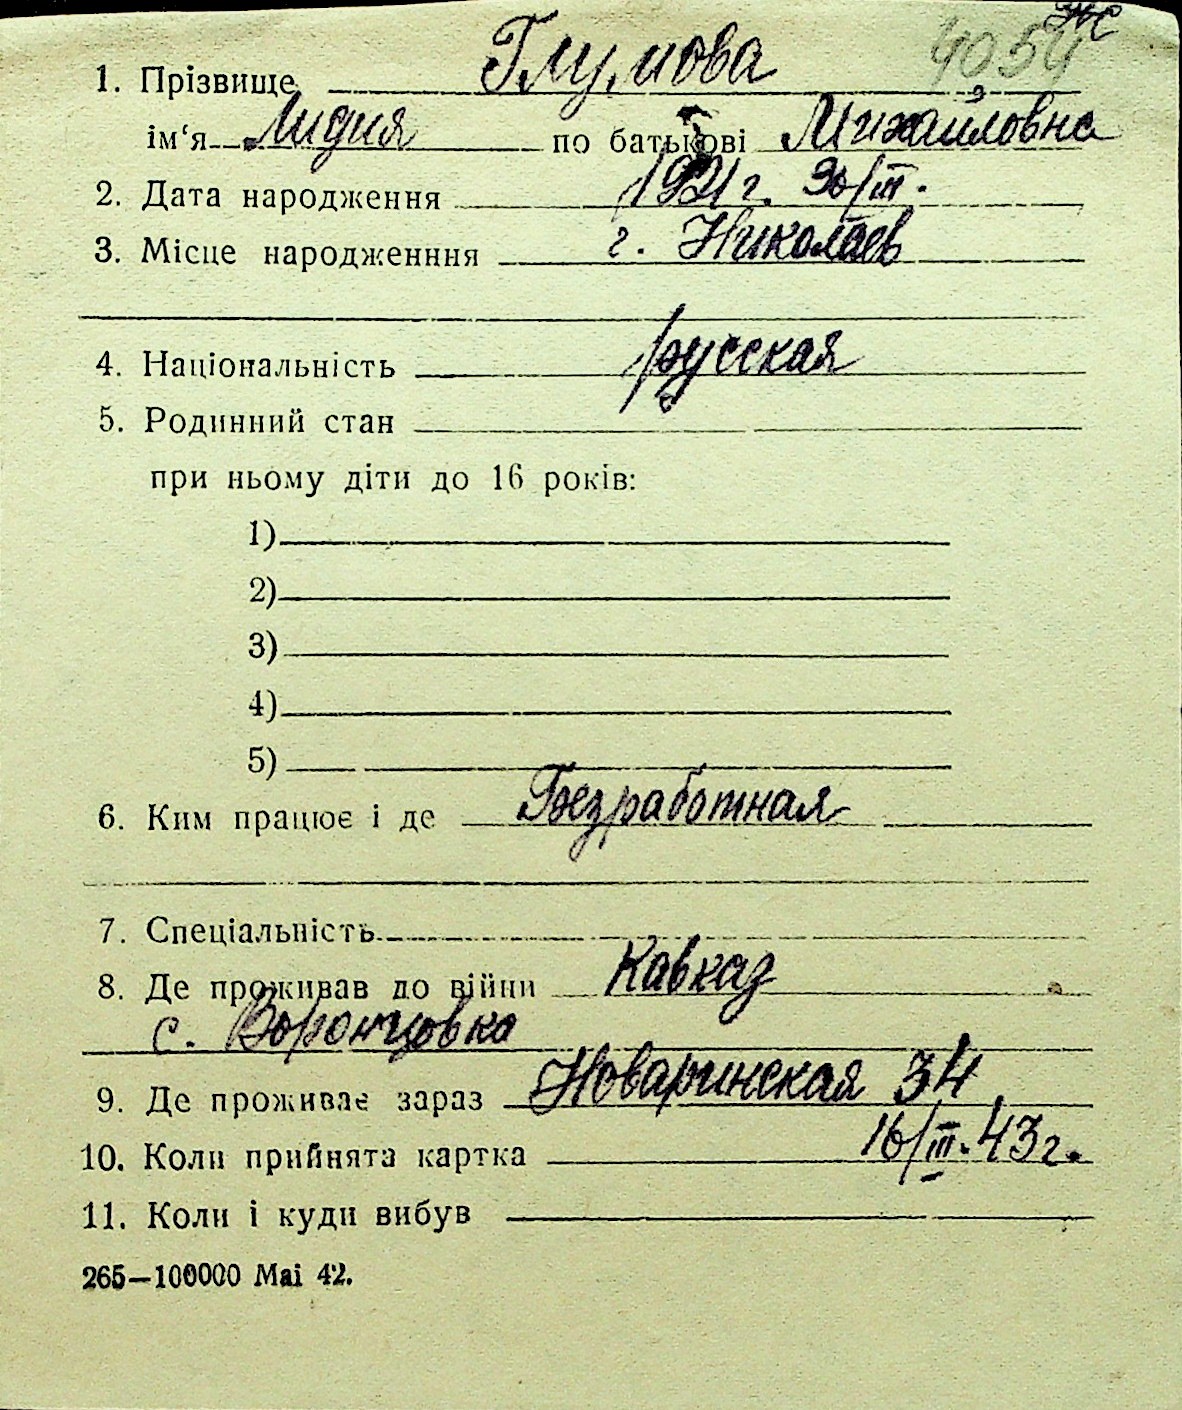 4054 жс
1. Прізвище Глумова
ім‘я Лидия по батькові Михайловна
2. Дата народження 1921 г. 30/III.
3. Місце народженння г. Николаев
4. Національність русская
5. Родинний стан
при ньому діти до 16 років:
1)
2)
3)
4)
5)
6. Ким працює і де Безработная
7. Спеціальність
8. Де проживав до війни Кавказ
с. Воронцовка
9. Де проживає зараз Новаринская 34
10. Коли прийнята картка 16/III. 43 г.
11. Коли і куди вибув
265—100000 Mai 42.